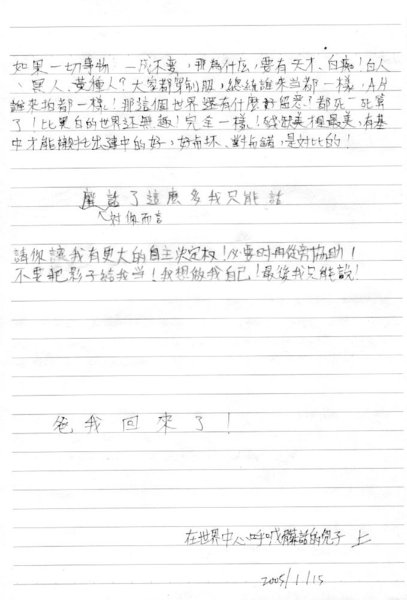 如果一切事物 一成不變，那為什么，要有天才、白痴！白人
、黑人、黃種人？大家都穿制服，總統誰來當都一樣，A片
誰來拍都一樣！那這個世界還有什麼好留戀？都死一死算
了！比黑白的世界还無趣！完全一樣！殘缺美才是最美，有基
中才能襯托出建中的好，好有坏、對有錯，是对比的！
廢話了這麼多我只能話
对你而言
請你讓我有更大的自主決定权！必要時再從旁協助！
不要把影子給我當！我想做我自己！最後我只能說！
爸我回來了！
在世界中心呼喊 話的兒子 上
2005/1/15